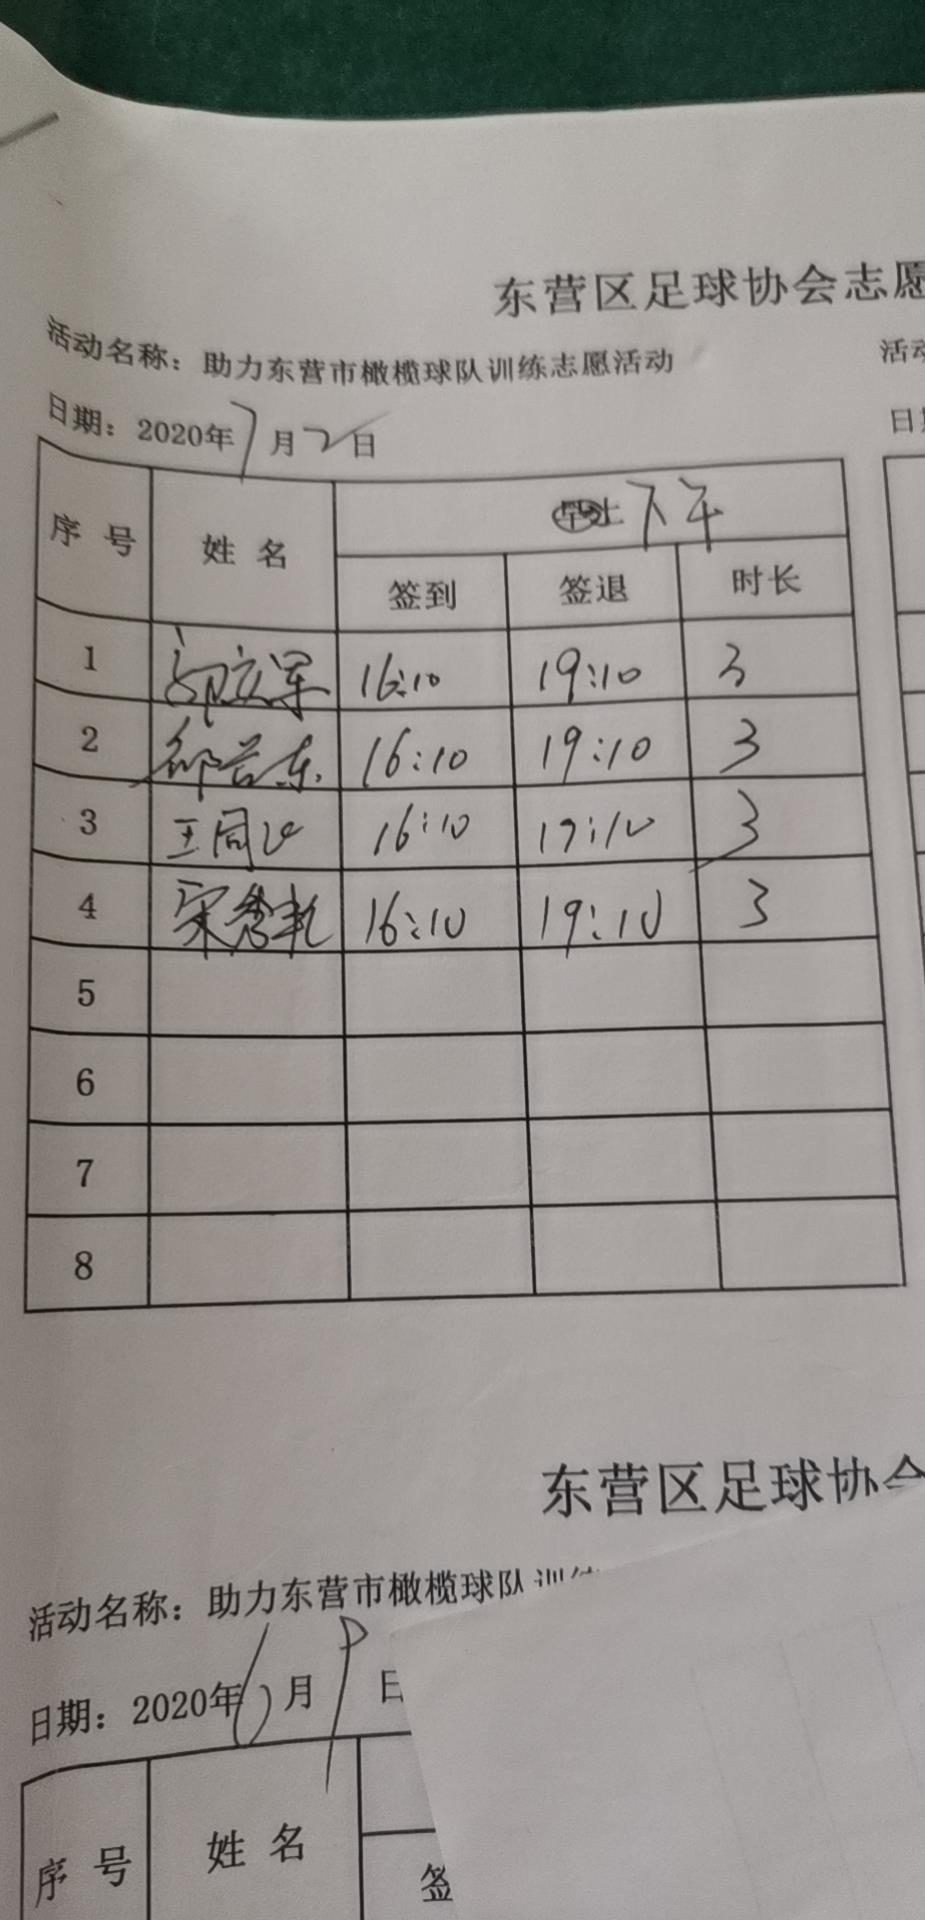 东营区足球协会志愿
活动名称：助力东营市橄榄球队训练志愿活动
活动
日期：2020年7月2日
日期
序号 姓名 下午
签到 签退 时长
1 16:10 19:10 3
2 16:10 19:10 3
3 王同 16:10 19:10 3
4 宋秀 16:10 19:10 3
5
6
7
8
东营区足球协会
活动名称：助力东营市橄榄球队训练
日期：2020年6月9日
序号 姓名
签